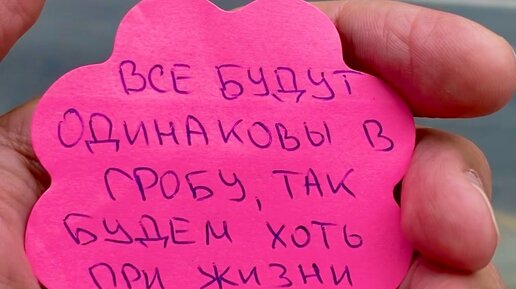 ВСЕ БУДУТ
ОДИНАКОВЫ В
ГРОБУ, ТАК
БУДЕМ ХОТЬ
ПРИ ЖИЗНИ